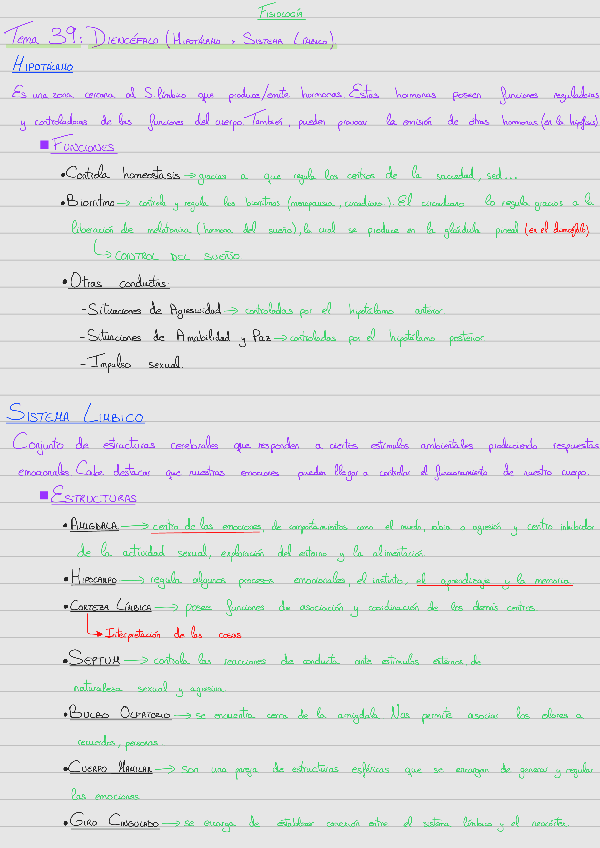 FISIOLOGÍA
TEMA 39: DIENCÉFALO (HIPOTÁLAMO Y SISTEMA LÍMBICO)
HIPOTÁLAMO
Es una zona cercana al S. límbico que produce/emite hormonas. Estas hormonas poseen funciones reguladoras
y controladoras de las funciones del cuerpo. También, pueden provocar la emisión de otras hormonas (en la hipófisis)
FUNCIONES
• Controla homeostasis → gracias a que regula los centros de la saciedad, sed...
• Bioritmo → controla y regula los bioritmos (menopausia, circadiano). El circadiano lo regula gracias a la
liberación de melatonina (hormona del sueño), la cual se produce en la glándula pineal (en el diencéfalo)
↳ CONTROL DEL SUEÑO
• Otras conductas:
- Situaciones de Agresividad → controladas por el hipotálamo anterior
- Situaciones de Amabilidad y Paz → controladas por el hipotálamo posterior
- Impulso sexual.
SISTEMA LÍMBICO
Conjunto de estructuras cerebrales que responden a ciertos estímulos ambientales produciendo respuestas
emocionales. Cabe destacar que nuestras emociones pueden llegar a controlar el funcionamiento de nuestro cuerpo.
ESTRUCTURAS
• AMÍGDALA → centro de las emociones, de comportamientos como el miedo, rabia o agresión y centro inhibidor
de la actividad sexual, exploración del entorno y la alimentación.
• HIPOCAMPO → regula algunos procesos emocionales, el instinto, el aprendizaje y la memoria
• CORTEZA LÍMBICA → posee funciones de asociación y coordinación de los demás centros
↳ Interpretación de las cosas
• SEPTUM → controla las reacciones de conducta ante estímulos externos de
naturaleza sexual y agresiva
• BULBO OLFATORIO → se encuentra cerca de la amígdala. Nos permite asociar los olores a
recuerdos, personas.
• CUERPO MAMILAR → son una pareja de estructuras esféricas que se encargan de generar y regular
las emociones
• GIRO CINGULADO → se encarga de establecer conexión entre el sistema límbico y el neocórtex.